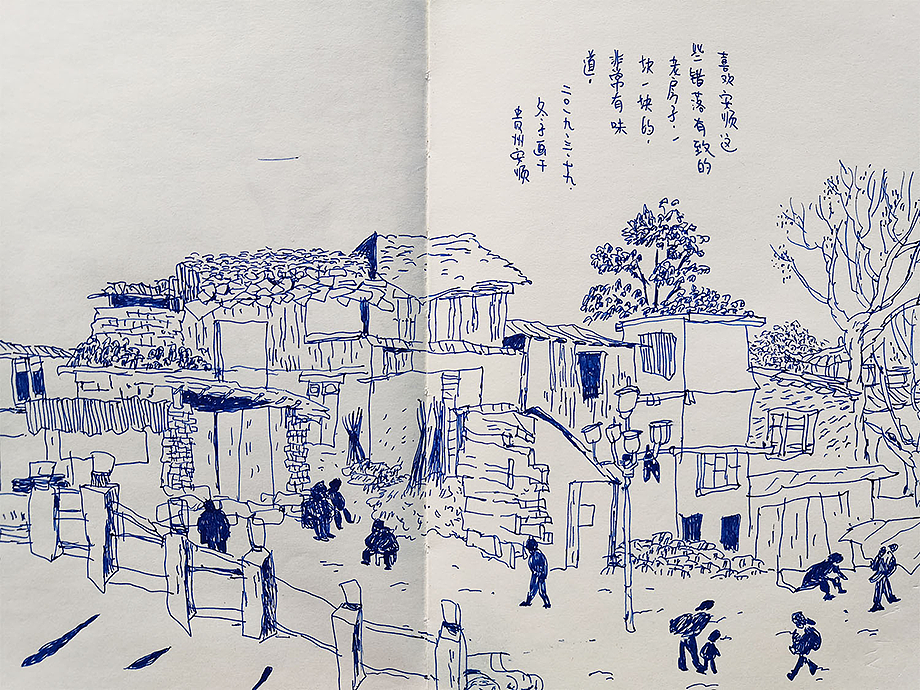 喜欢安顺这
些错落有致的
老房子，一
块一块的，
非常有味
道。
二〇一九.三.十九
冬子画于
贵州安顺